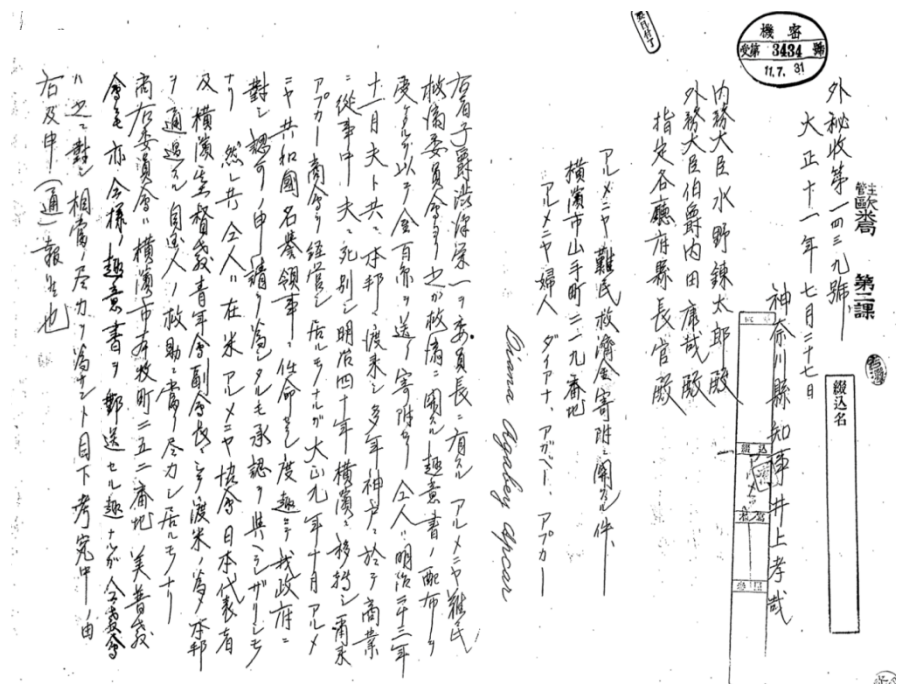 機密
受第 3434 號
11.7.31
主管 歐米局 第二課
綴込名
外秘收第一四三九號
大正十一年七月二十七日
神奈川縣知事井上孝哉
内務大臣水野錬太郎殿
外務大臣伯爵内田康哉殿
指定各廳府縣長官殿
アルメニヤ難民救濟金寄附ニ関スル件
横濱市山手町二一九番地
アルメニヤ婦人 ダイアナ、アガベー、アプカー
Diana Agabey Apcar
右者子爵渋澤栄一ヲ委員長ニ有スルアルメニヤ難民
救濟委員會ヨリ之カ救濟ニ関スル趣意書ノ配布ヲ
受ケタルヲ以テ金百円ヲ送リ寄附セリ 仝人ハ明治二十三年
十一月夫ト共ニ本邦ニ渡来シ多年神戸ニ於テ商業
ニ從事中夫ニ死別シ明治四十年横濱ニ移轉シ爾来
アプカー商會ヲ経営シ居ルモノナルガ大正九年十月アルメ
ニヤ共和國名譽領事ニ任命セラレ度趣ヲ以テ我政府ニ
對シ認可ノ申請ヲ為シタルモ承認ヲ與ヘラレザリシモノ
ナリ 然レ共仝人ハ在米アルメニヤ協會日本代表者
及横濱基督教青年會副會長トシテ渡米ノ為メ本邦
ヲ通過スル自國人ノ救助ニ常ニ尽力シ居ルモノナリ
尚右委員會ハ横濱市本牧町二五二番地 美普教
會ニモ亦仝様ノ趣意書ヲ郵送セル趣ナルガ仝教會
ハ之ニ對シ相當ノ尽力ヲ為サント目下考究中ノ由
右及申(通)報候也